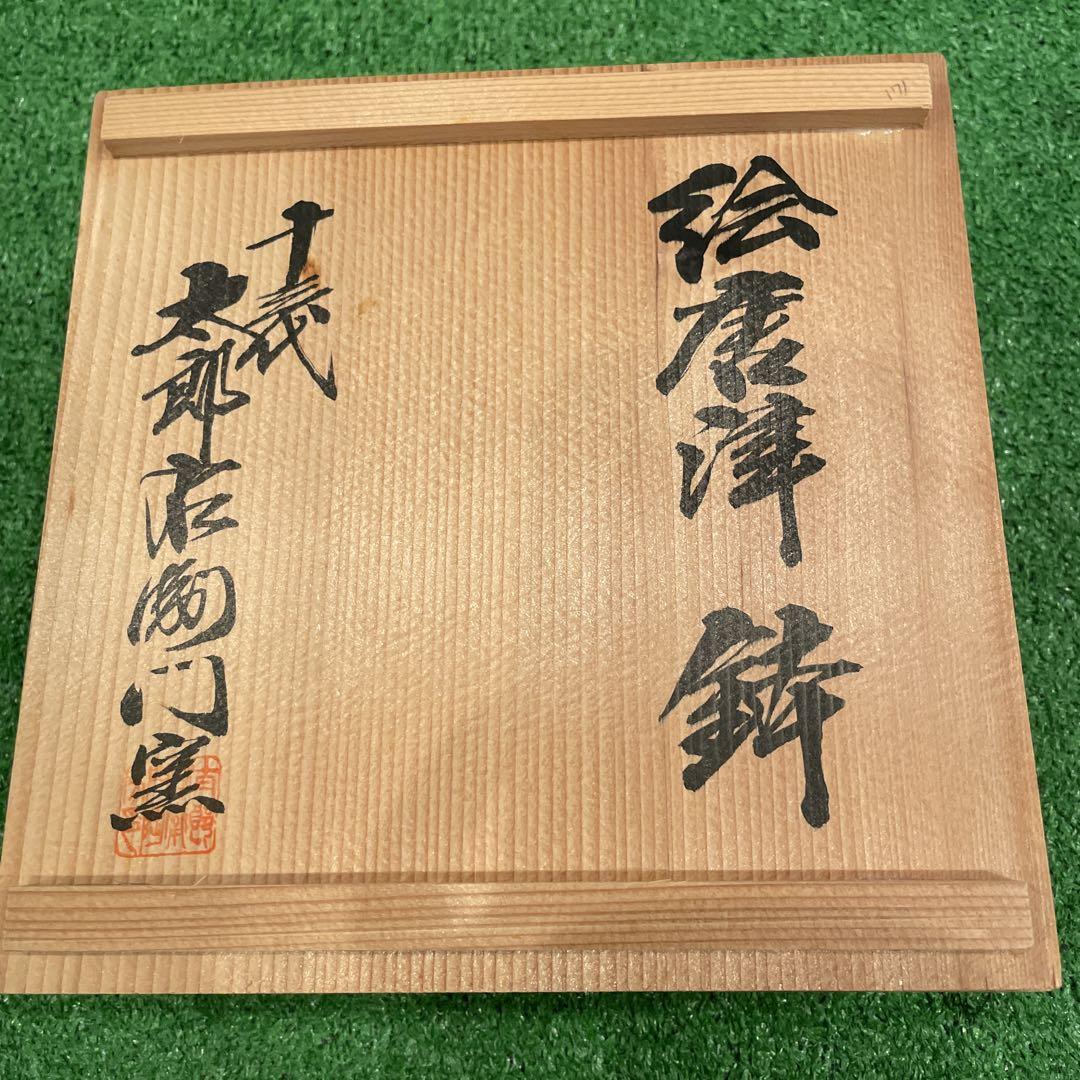 絵唐津 鉢
十三代
太郎右衛門窯
171